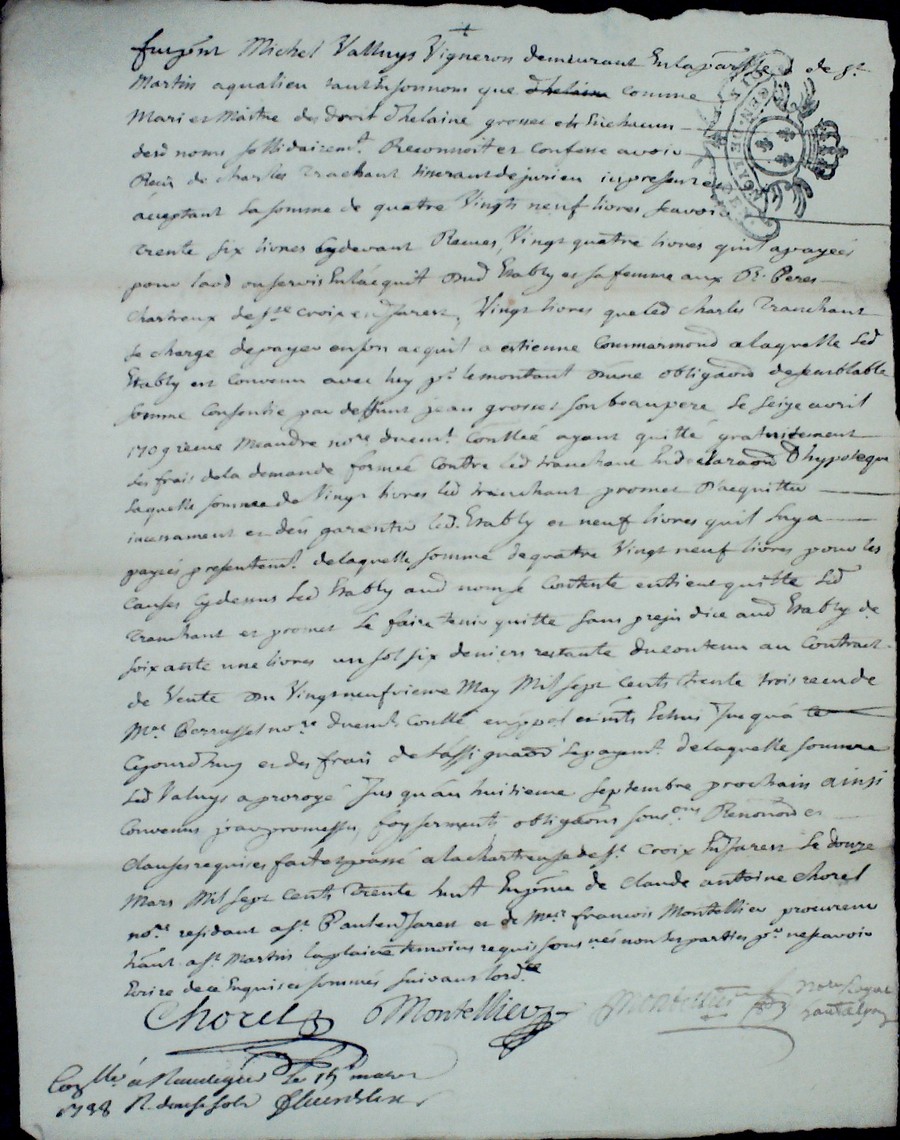 fut présent Michel Valluys Vigneron demeurant En la parroisse de St
Martin a qualieu tant En son nom que d'helaine comme
Mari et Maitre des Droit d'helaine grosset et En chacun
desd noms sollidairemt. Reconnoit et Confesse avoir
Reçu de Charles Tranchant tisserant de jurieu icy present et
acceptant la somme de quatre Vingts neuf livres scavoir
trente six livres Cy devant Recues, Vingt quatre livres quil a payées
pour laod ou servis En lacquit dud Etably et sa femme aux Rd. Peres
Chartreux de Ste Croix en Jarest, Vingt livres que led Charles Tranchant
se charge de payer en son acquit a estienne Commarmond a laquelle Led
Etably est Convenu avec luy pr. le montant d'une obligaon de semblable
somme Consentie par deffunt jean grosset son beaupere Le seize avril
1709 receue Meandre nore. duemt. Contllée ayant quitté gratuitement
les frais de la demande formée Contre Led tranchant En declaraon d'hypoteque
Laquelle somme de Vingt livres Led tranchant promet d'acquitter
incessament et d'en garentir led. Etably et neuf livres quil luy a
payées presentemt. de laquelle somme de quatre Vingt neuf livres pour les
Causes Cy dessus Led Etably aud nom se Contente entient quitte Led
Tranchant et promet le faire tenir quitte sans prejudice aud Etably de
soixante une livres un sol six deniers restante du contenu au Contract
de Vente du Vingt neufvieme May Mil sept Cents trente trois receu de
Mre. Perrusset nore. duemt. Contllé Echus Jusquà
Cejourdhuy et des frais de l'assignaon Le payemt. de laquelle somme
Led Valuys a prorogé Jusqu'au huitieme septembre prochain ainsi
Convenus par promesses, foy serments obligaons Renonons et
Clauses requises fait et passé a la Chartreuse de Ste. Croix En Jarest Le douze
Mars Mil sept Cents Trente huit En presence de Claude antoine Chorel
nore. residant a St. Paul en Jarest et de Me. francois Montellier procureur
a St. Martin la plaine temoins requis sousnés non les parties pr. ne scavoir
Ecrire de ce Enquises sommés suivant lordce
Chorel Montellier Montellier nore. Royal
Conllé. à le 15e. mars
1738 R. douze sols